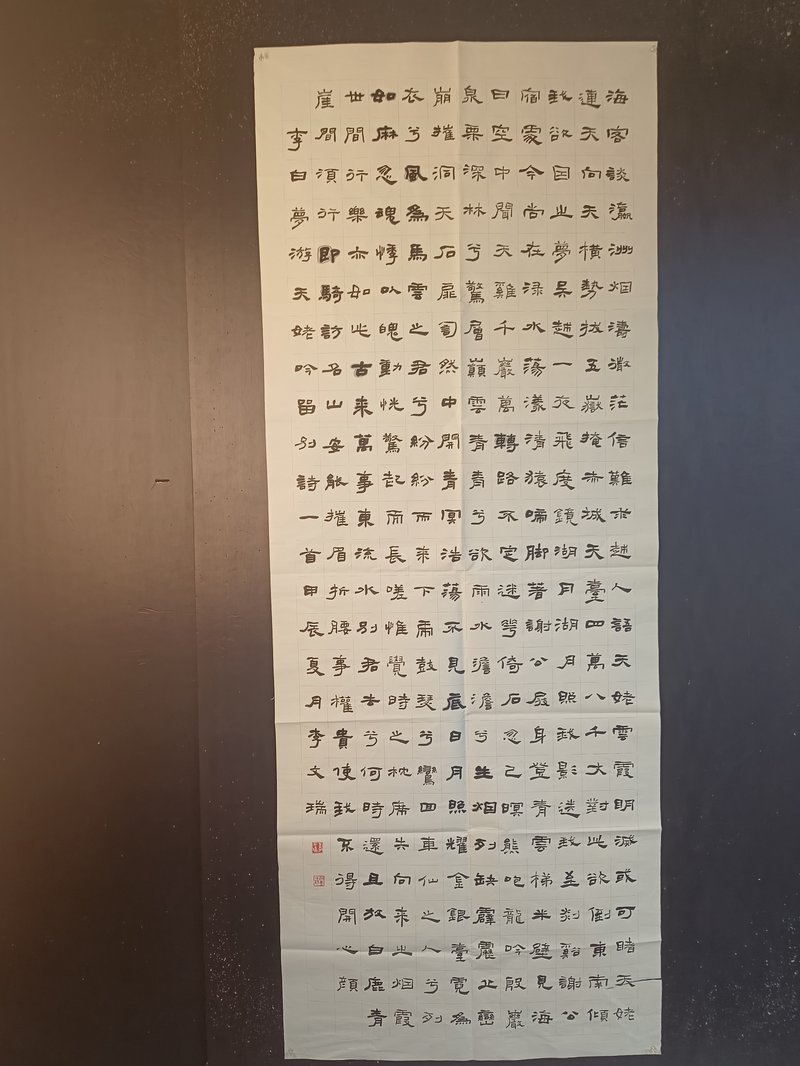 海客談瀛洲烟濤微茫信難求越人語天姥雲霞明滅或可睹天姥
連天向天橫勢拔五嶽掩赤城天臺四萬八千丈對此欲倒東南傾
我欲因之夢吳越一夜飛度鏡湖月湖月照我影送我至剡谿謝公
宿處今尚在淥水蕩漾清猿啼脚著謝公屐身登青雲梯半壁見海
日空中聞天雞千巖萬轉路不定迷華倚石忽已暝熊咆龍吟殷巖
泉栗深林兮驚層巔雲青青兮欲雨水澹澹兮生烟列缺霹靂丘巒
崩摧洞天石扉訇然中開青冥浩蕩不見底日月照耀金銀臺霓為
衣兮風為馬雲之君兮紛紛而來下虎鼓瑟兮鸞回車仙之人兮列
如麻忽魂悸以魄動恍驚起而長嗟惟覺時之枕席失向來之烟霞
世間行樂亦如此古來萬事東流水別君去兮何時還且放白鹿青
崖間須行即騎訪名山安能摧眉折腰事權貴使我不得開心顏
李白夢游天姥吟留別詩一首甲辰夏月李文瑞